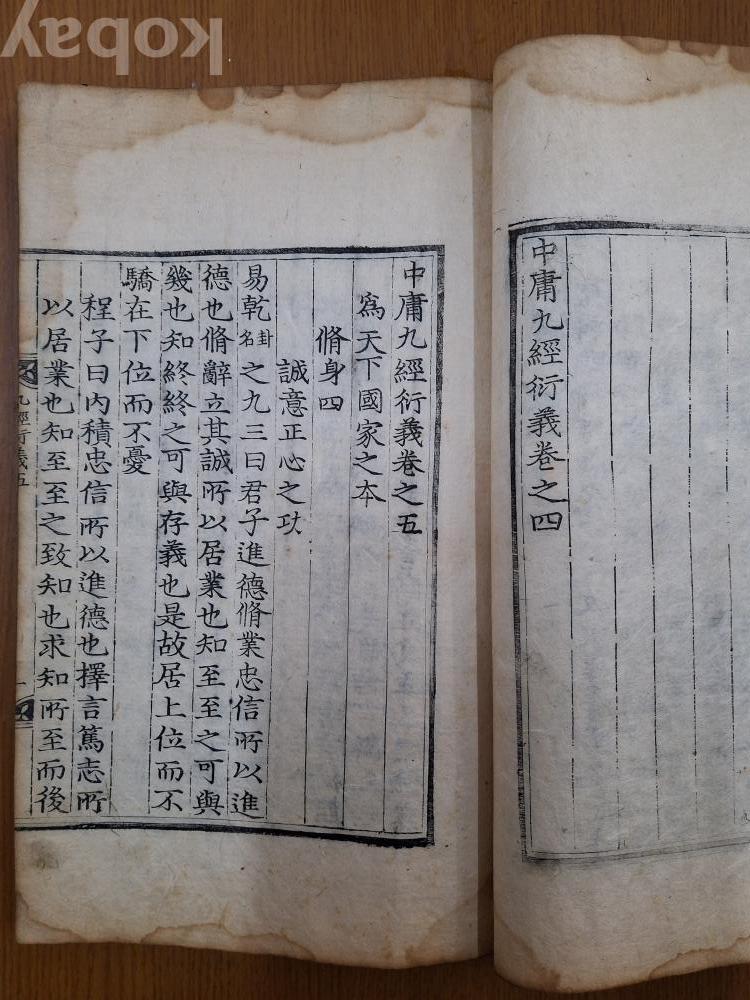 kobay
中庸九經衍義卷之四
中庸九經衍義卷之五
爲天下國家之本
脩身四
誠意正心之功
易乾卦名之九三曰君子進德脩業忠信所以進
德也脩辭立其誠所以居業也知至至之可與
幾也知終終之可與存義也是故居上位而不
驕在下位而不憂
程子曰内積忠信所以進德也擇言篤志所
以居業也知至至之致知也求知所至而後
九經衍義五
一